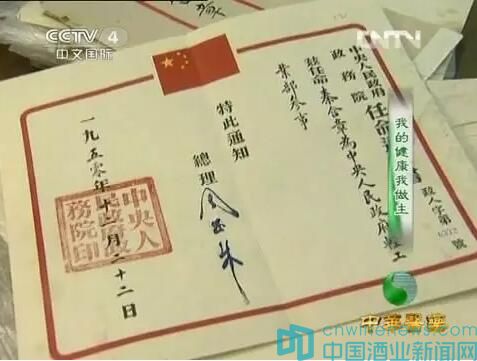 CCTV 4
中文国际
CNTV
政人字第
號
中央人民政府
政務院
任命通
書
茲任命秦含章為中央人民政府輕工
業部參事
特此通知
總理 周恩來
一九五零年
月二十二日
中央人民政府政務院印
我的健康我做主
中华医药
cnwinenews.com
中国酒业新闻网